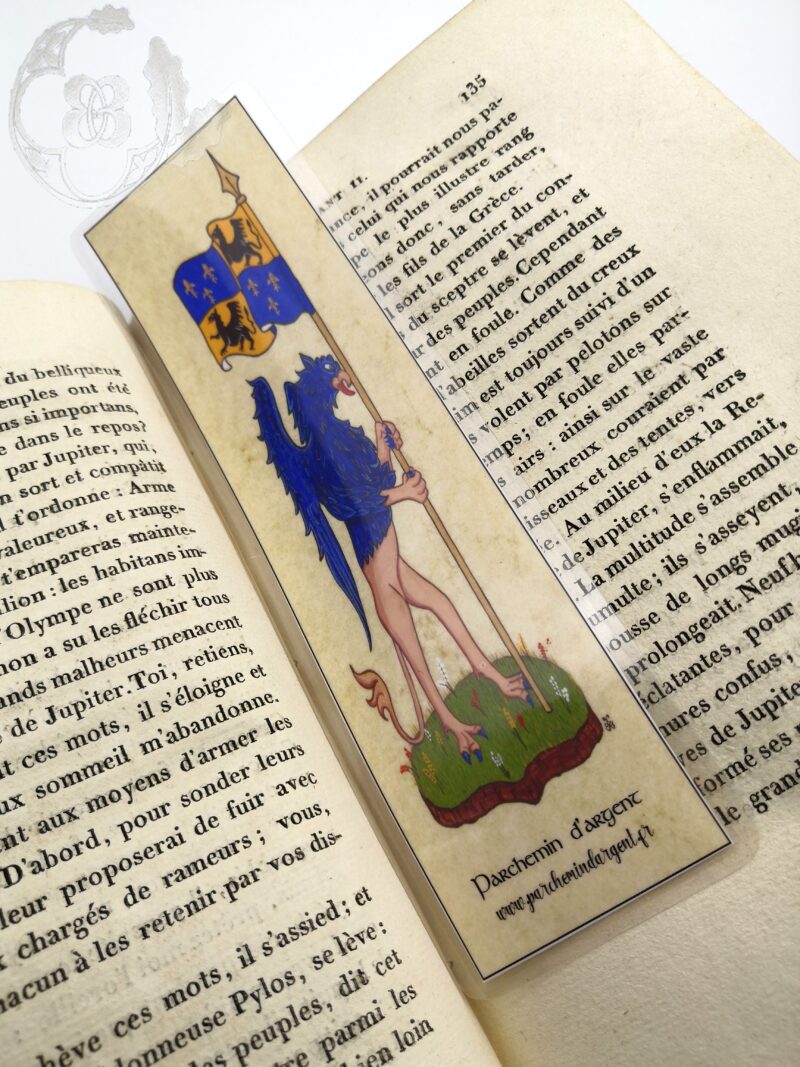 du belliqueux
peuples ont été
ns si importans,
e dans le repos?
par Jupiter, qui,
n sort et compâtit
l t'ordonne : Arme
valeureux, et range-
t'empareras mainte-
lion : les habitans im-
l'Olympe ne sont plus
non a su les fléchir tous
ands malheurs menacent
s de Jupiter. Toi, retiens,
it ces mots, il s'éloigne et
ux sommeil m'abandonne.
ent aux moyens d'armer les
D'abord, pour sonder leurs
leur proposerai de fuir avec
x chargés de rameurs ; vous,
hacun à les retenir par vos dis-
ces mots, il s'assied ; et
hève ces mots, se lève :
donneuse Pylos,
les peuples, dit cet
tre parmi les
bien loin
135
ANT II.
ance, il pourrait nous pa-
celui qui nous rapporte
pe le plus illustre rang
çons donc, sans tarder,
les fils de la Grèce.
l sort le premier du con-
s du sceptre se lèvent, et
ur des peuples. Cependant
nt en foule. Comme des
l'abeilles sortent du creux
im est toujours suivi d'un
s volent par pelotons sur
mps ; en foule elles par-
airs : ainsi sur le vaste
nombreux couraient par
isseaux et des tentes, vers
e. Au milieu d'eux la Re-
de Jupiter, s'enflammait,
La multitude s'assemble
umulte ; ils s'asseyent,
ousse de longs mugi
prolongeait. Neuf h
éclatantes, pour
mures confus,
ves de Jupite
formé ses
le grand
Parchemin d'argent
www.parchemindargent.fr